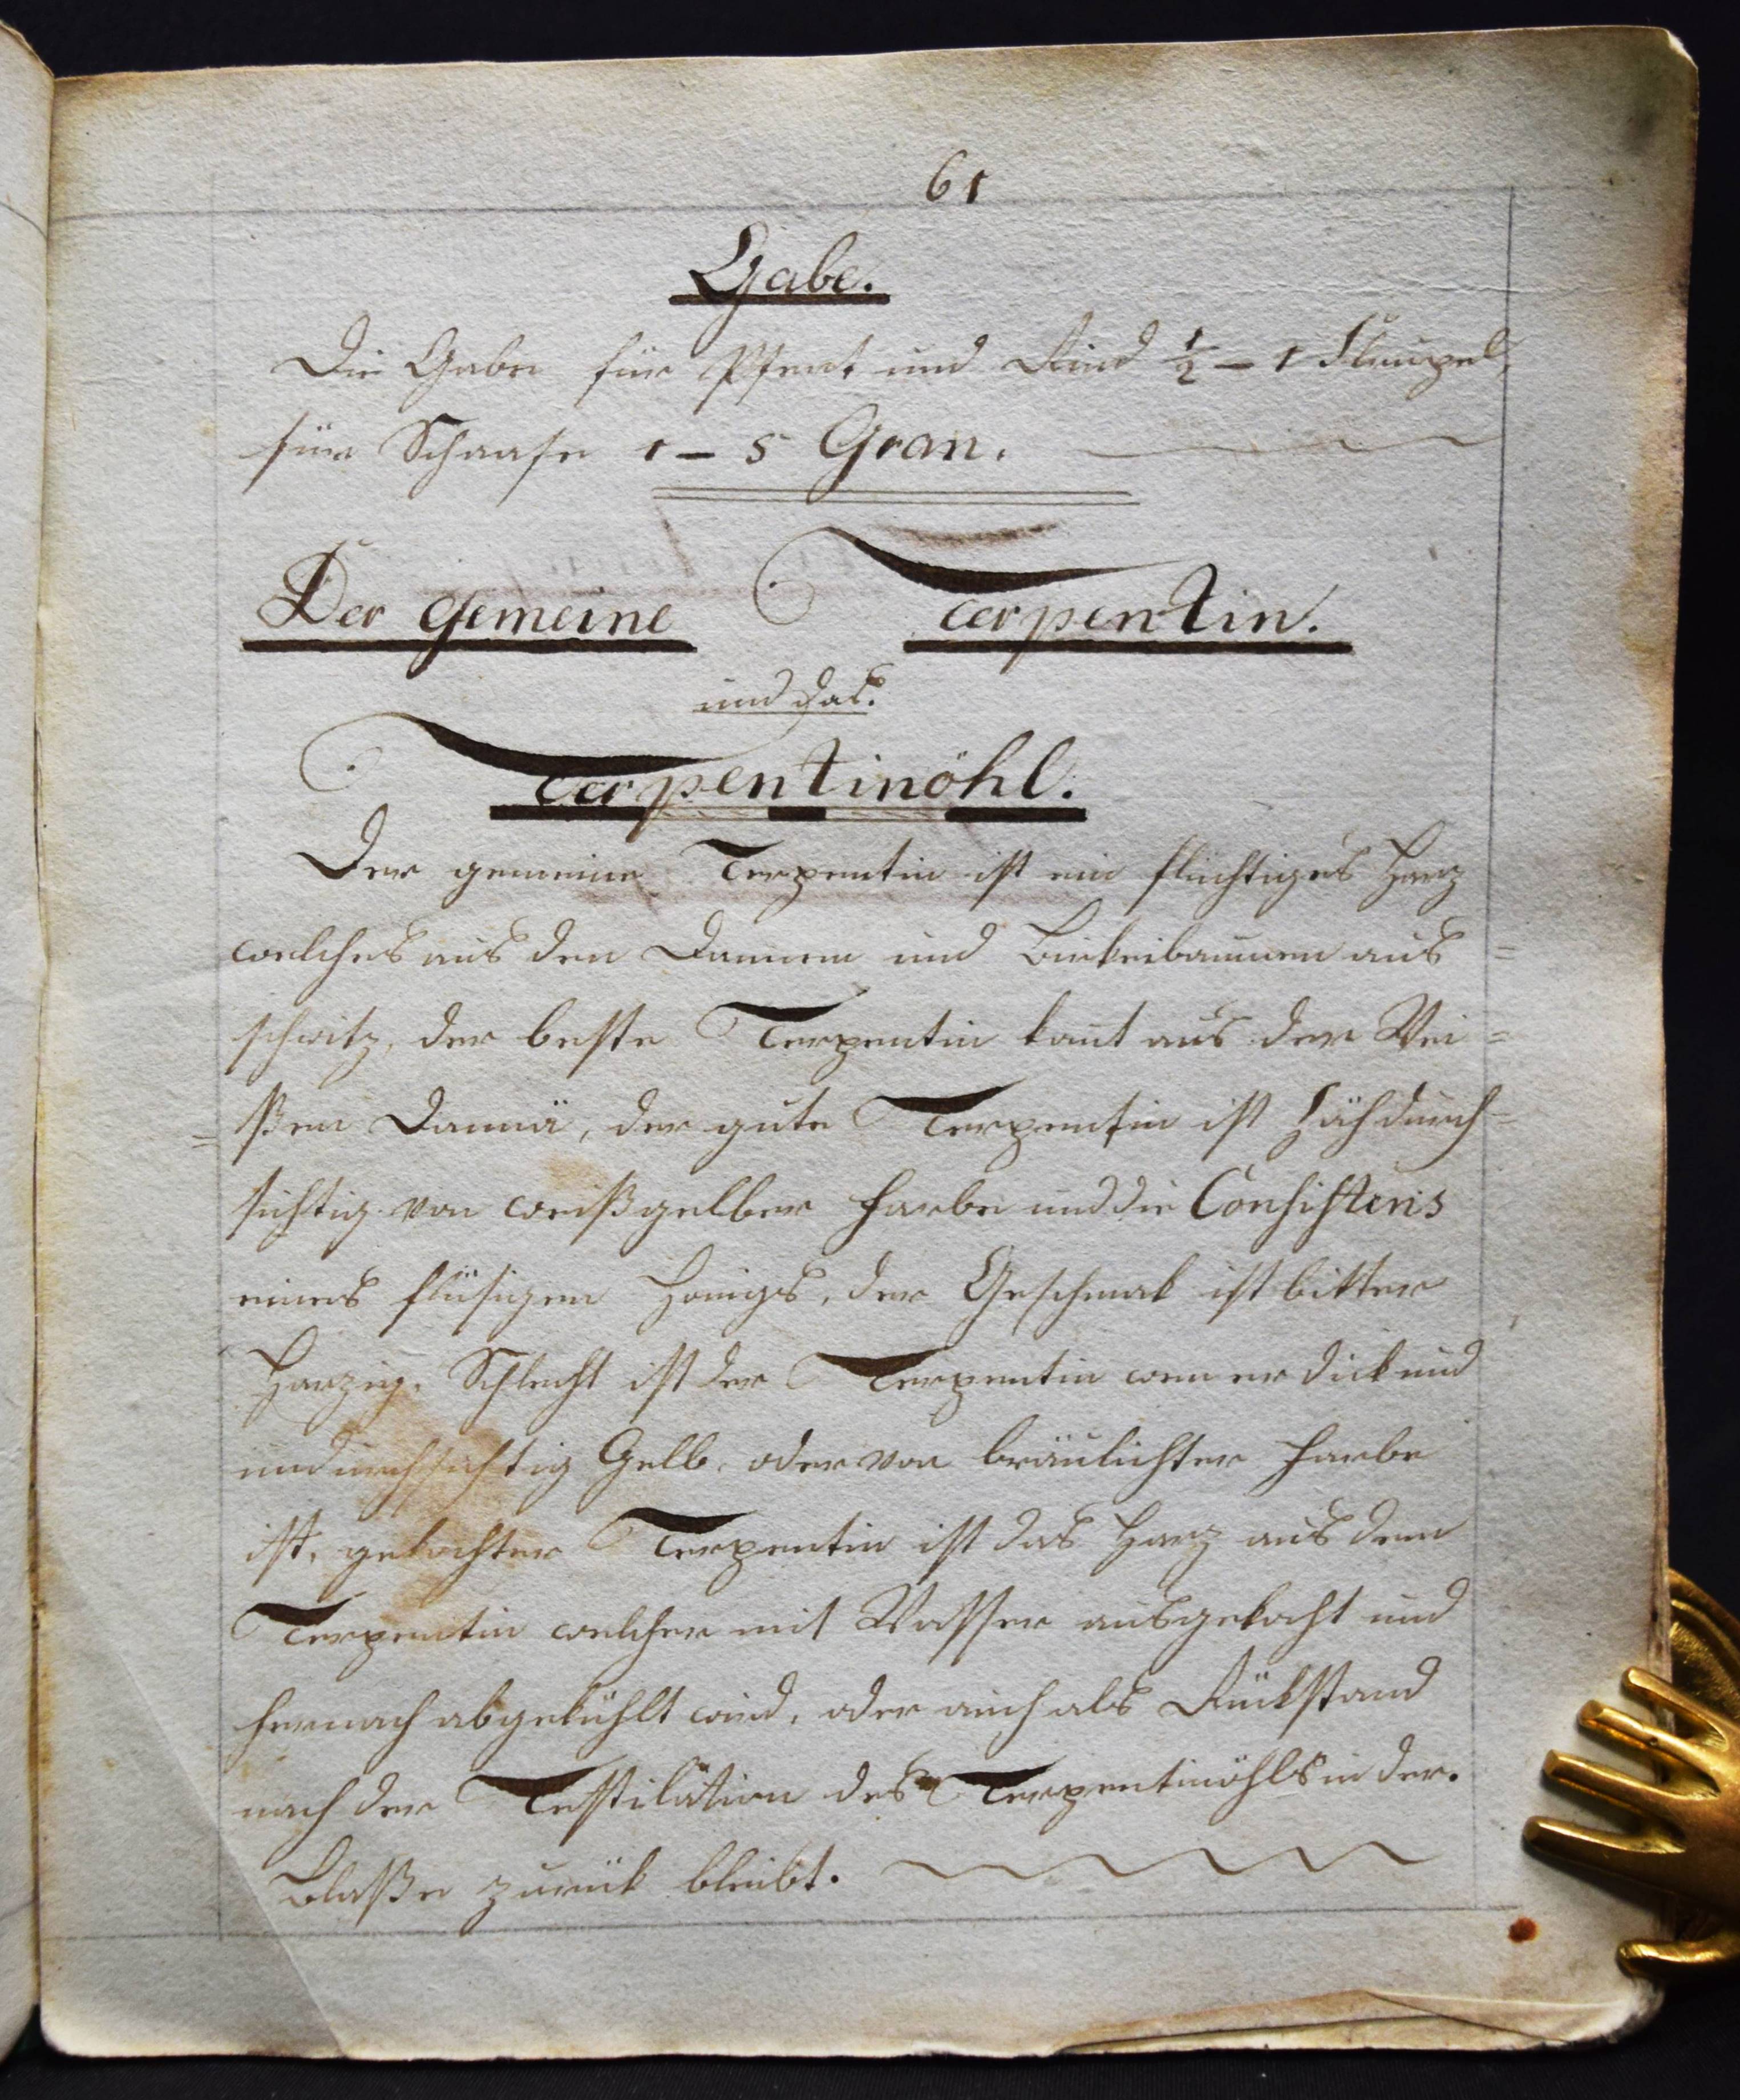 61
Gabe.
Die Gabe für Pfert und Rind ½ – 1 Skrupel,
für Schaafe 1 – 5 Gran.
Der gemeine Terpentin.
und das.
Terpentinöhl.
Der gemeine Terpentin ist ein flüchtiges Harz
welches aus den Dannen und Birkenbaumen aus =
schwitz, der beste Terpentin komt aus der Wei =
= ßen Danne, der gute Terpentin ist Zäh durch =
sichtig von weißgelber Farbe und die Consistens
eines flüsigen Honigs, der Geschmak ist bitter
Harzig. Schlecht ist der Terpentin wen er dick und
undurchsichtig Gelb, oder von bräulichter Farbe
ist, gekochter Terpentin ist das Harz aus dem
Terpentin welcher mit Wasser ausgekocht und
hernach abgekühlt wird, oder auch als Rückstand
nach der Testilation des Terpentinöhls in der.
Blaße zurük bleibt.